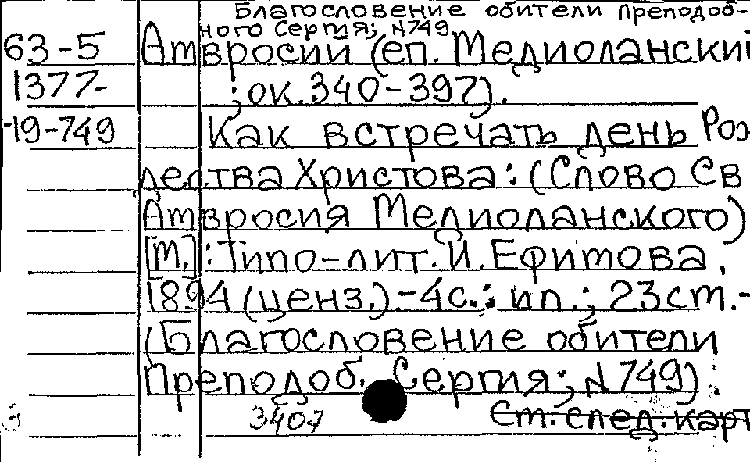 Благословение обители Преподоб-
ного Сергия; №749
63-5 Амвросий (еп. Медиоланский
1377- ; ок. 340-397).
19-749 Как встречать день Рож
дества Христова: (Слово Св
Амвросия Медиоланского)
[М.]: Типо-лит. И. Ефимова,
1894 (ценз.).-4с.: ил.; 23см.-
(Благословение обители
Преподоб. Сергия; №749).
3407 См. след. карт